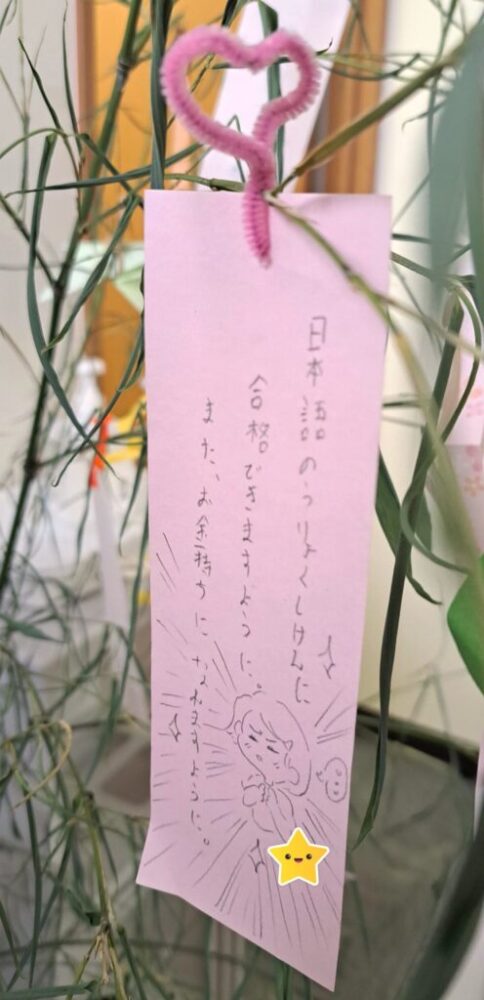 日本語のうりょくしけんに
合格できますように。
また、お金持ちになれますように。